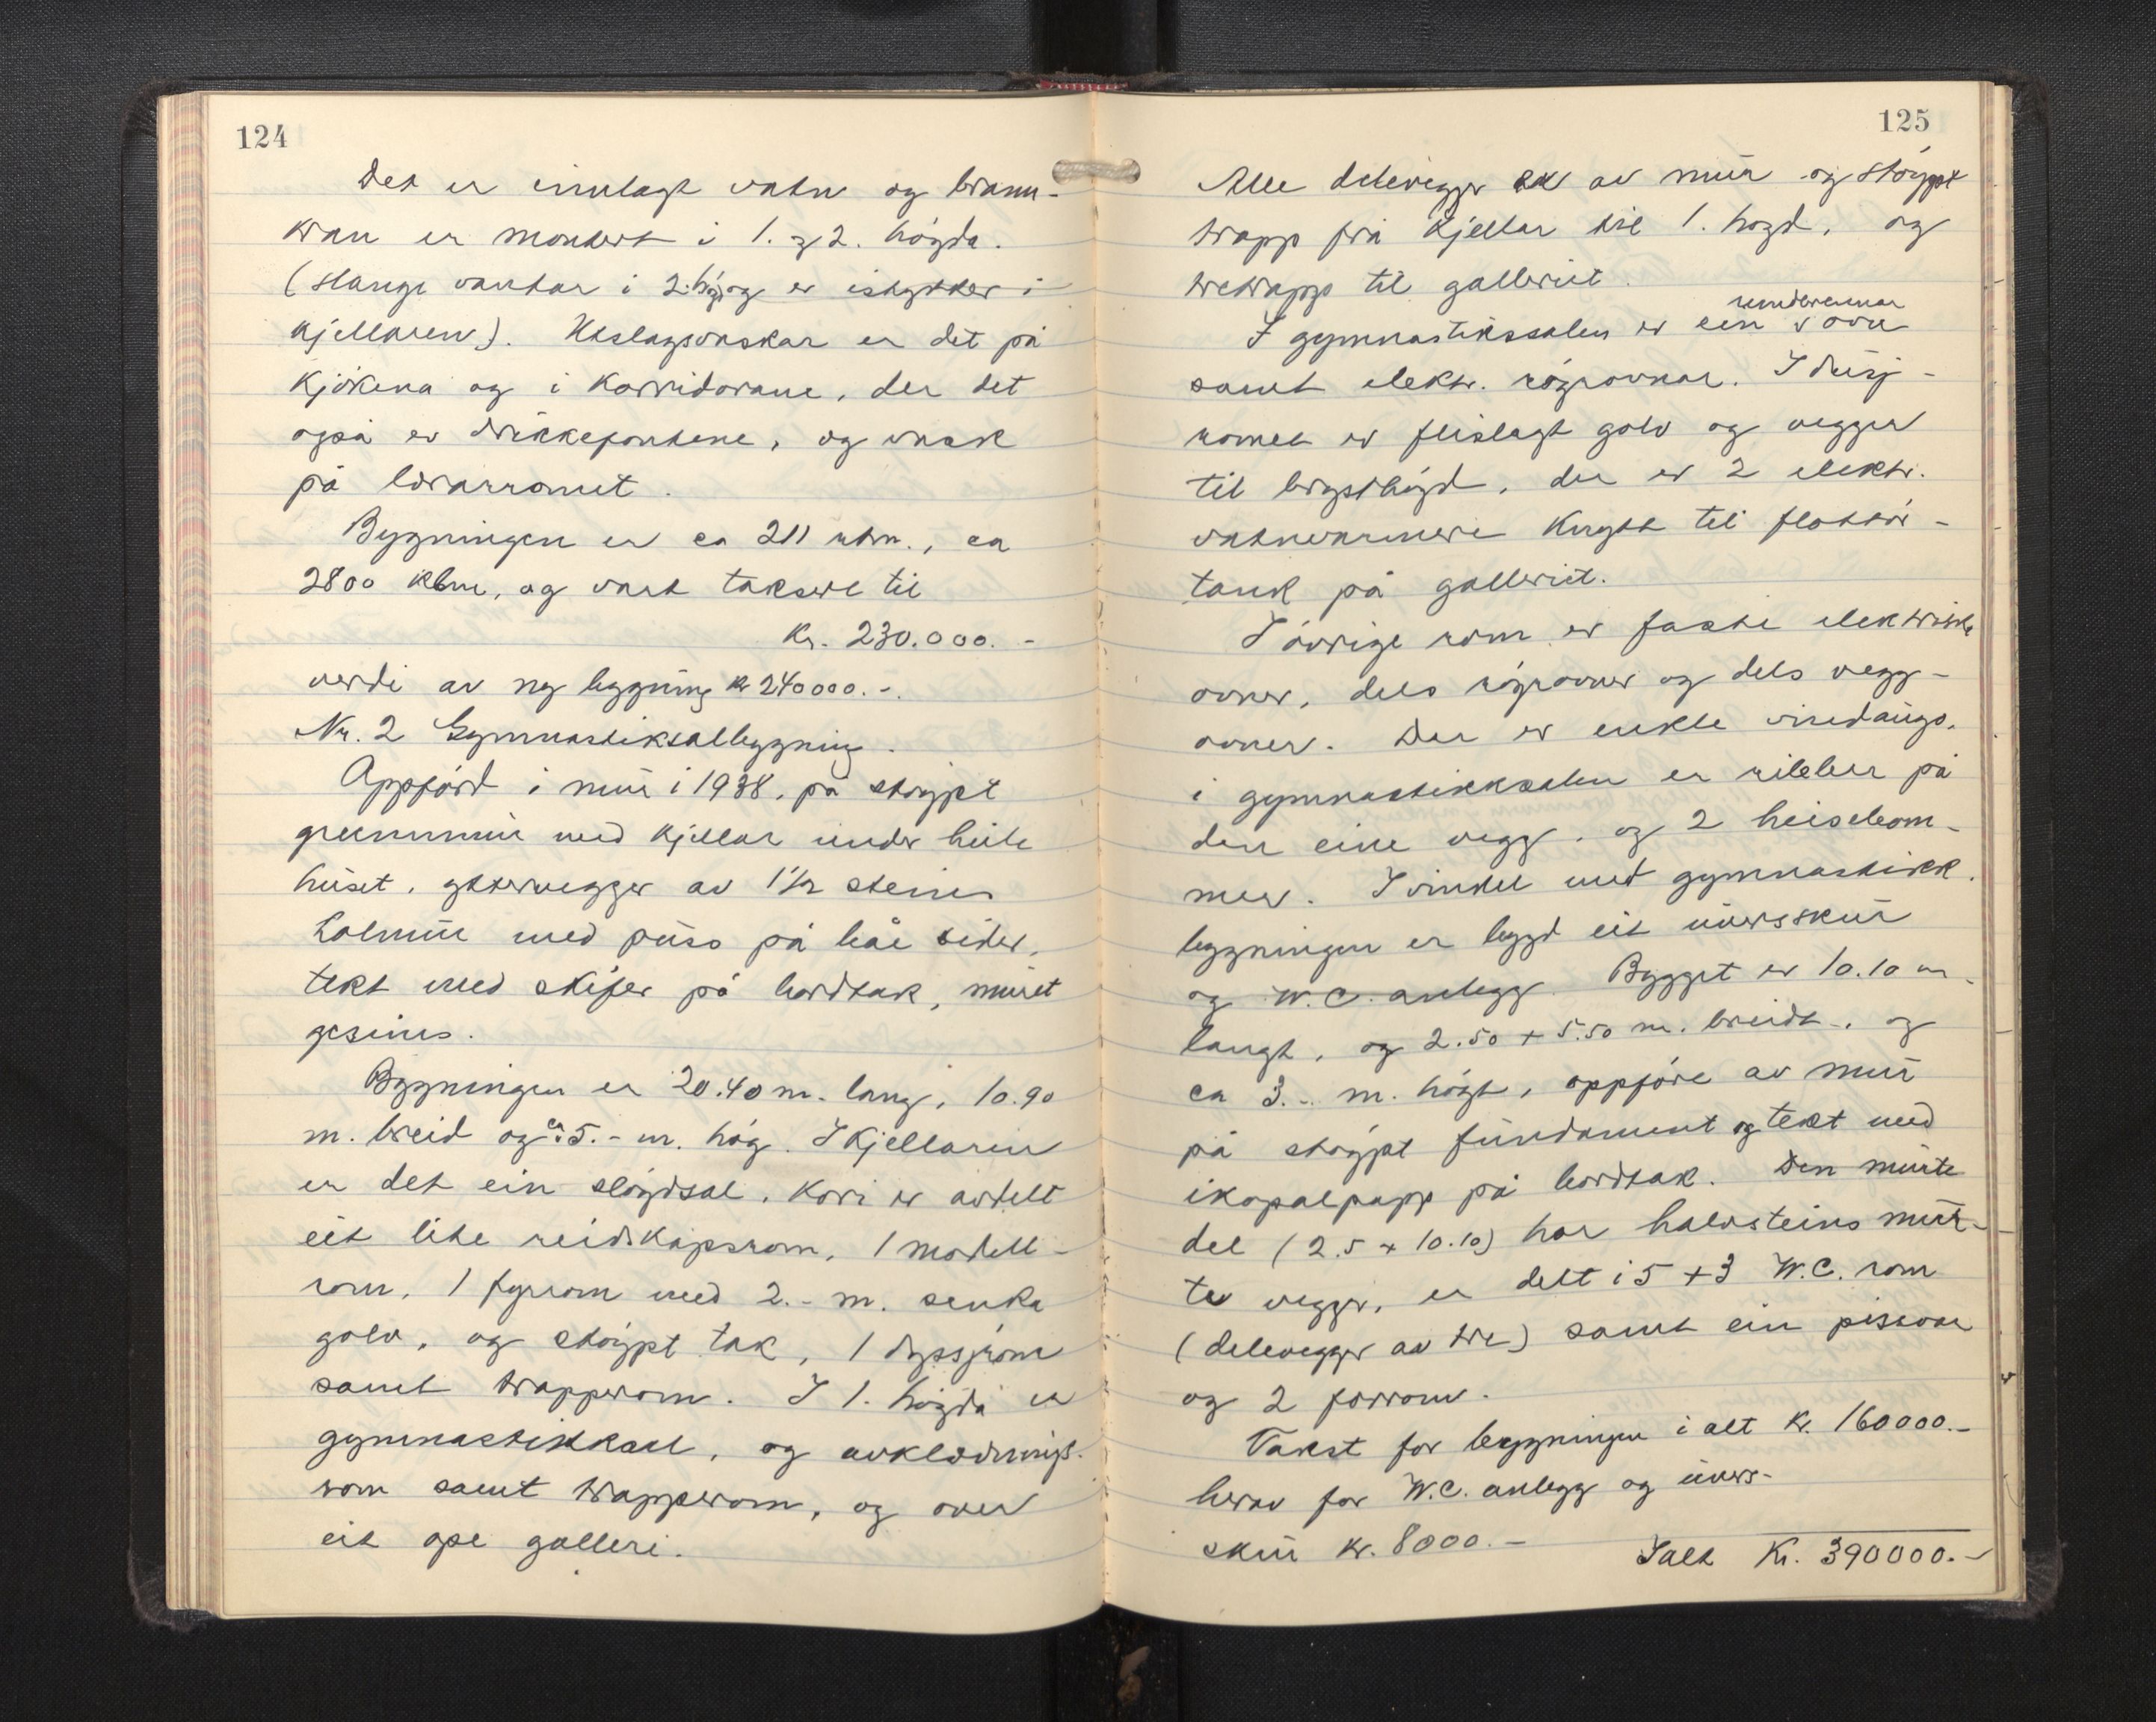 124
Det er innlagt vatn og brann-
kran er montert i 1. og 2. høgda.
(Slange vantar i 2. høgd og er istykker i
kjellaren). Utslagsvaskar er det på
kjøkena og i korridorane, der det
også er drikkefontene, og vask
på lærarromet.
Bygningen er ca 211 kvm., ca
2800 kbm, og vart taksert til
Kr. 230.000.-
verdi av ny bygning kr 240000.-.
Nr. 2 Gymnastiksalbygning.
Oppförd i mur i 1938, på støypt
grunnmur med kjellar under heile
huset, yttervegger av 1 1/2 steins
holmur med puss på båe sider,
tekt med skifer på bordtak, muret
gesims.
Bygningen er 20.40 m. lang, 10.90
m. breid og ca 5.- m. høg. I kjellaren
er det ein sløgdsal, kori er avdelt
eit lite reidskapsrom, 1 modell-
rom, 1 fyrrom med 2.- m. senka
golv, og støypt tak, 1 dyssjrom
samt trapperom. I 1. høgda er
gymnastikksal, og avklædnings-
rom samt trapperom, og over
eit ope galleri.
125
Alle delevegger er av mur og støypt
trapp frå kjellar til 1. høgd, og
tretrapp til galleriet.
I gymnastikssalen er ein v ovn
samt elektr. røyrovnar. I dusj-
romet er flislagt golv og vegger
til brysthøgd, der er 2 elektr.
vatnvarmere knytt til flottör-
tank på galleriet.
I övrige rom er faste elektriske
ovner, dels røyrovner og dels vegg-
ovner. Der er enkle vindaugo.
i gymnastikksalen er ribber på
den eine vegg, og 2 heisebom-
mer. I vinkel med gymnastikk.
bygningen er bygd eit uversskur
og W.C. anlegg. Bygget er 10.10 m.
langt, og 2.50 + 5.50 m. breidt, og
ca 3.- m. høgt, oppføre av mur
på støypt fundament og tekt med
ikopalpapp på bordtak. Den murte
del (2.5 x 10.10) har halvsteins mur-
te vegger, er delt i 5 + 3 W.C. rom
(delevegger av tre) samt ein pissoar
og 2 forrom.
Takst for bygningen i alt kr. 160000.-
herav for W.C. anlegg og uvers-
skur kr. 8000.-
Ialt Kr. 390000.-